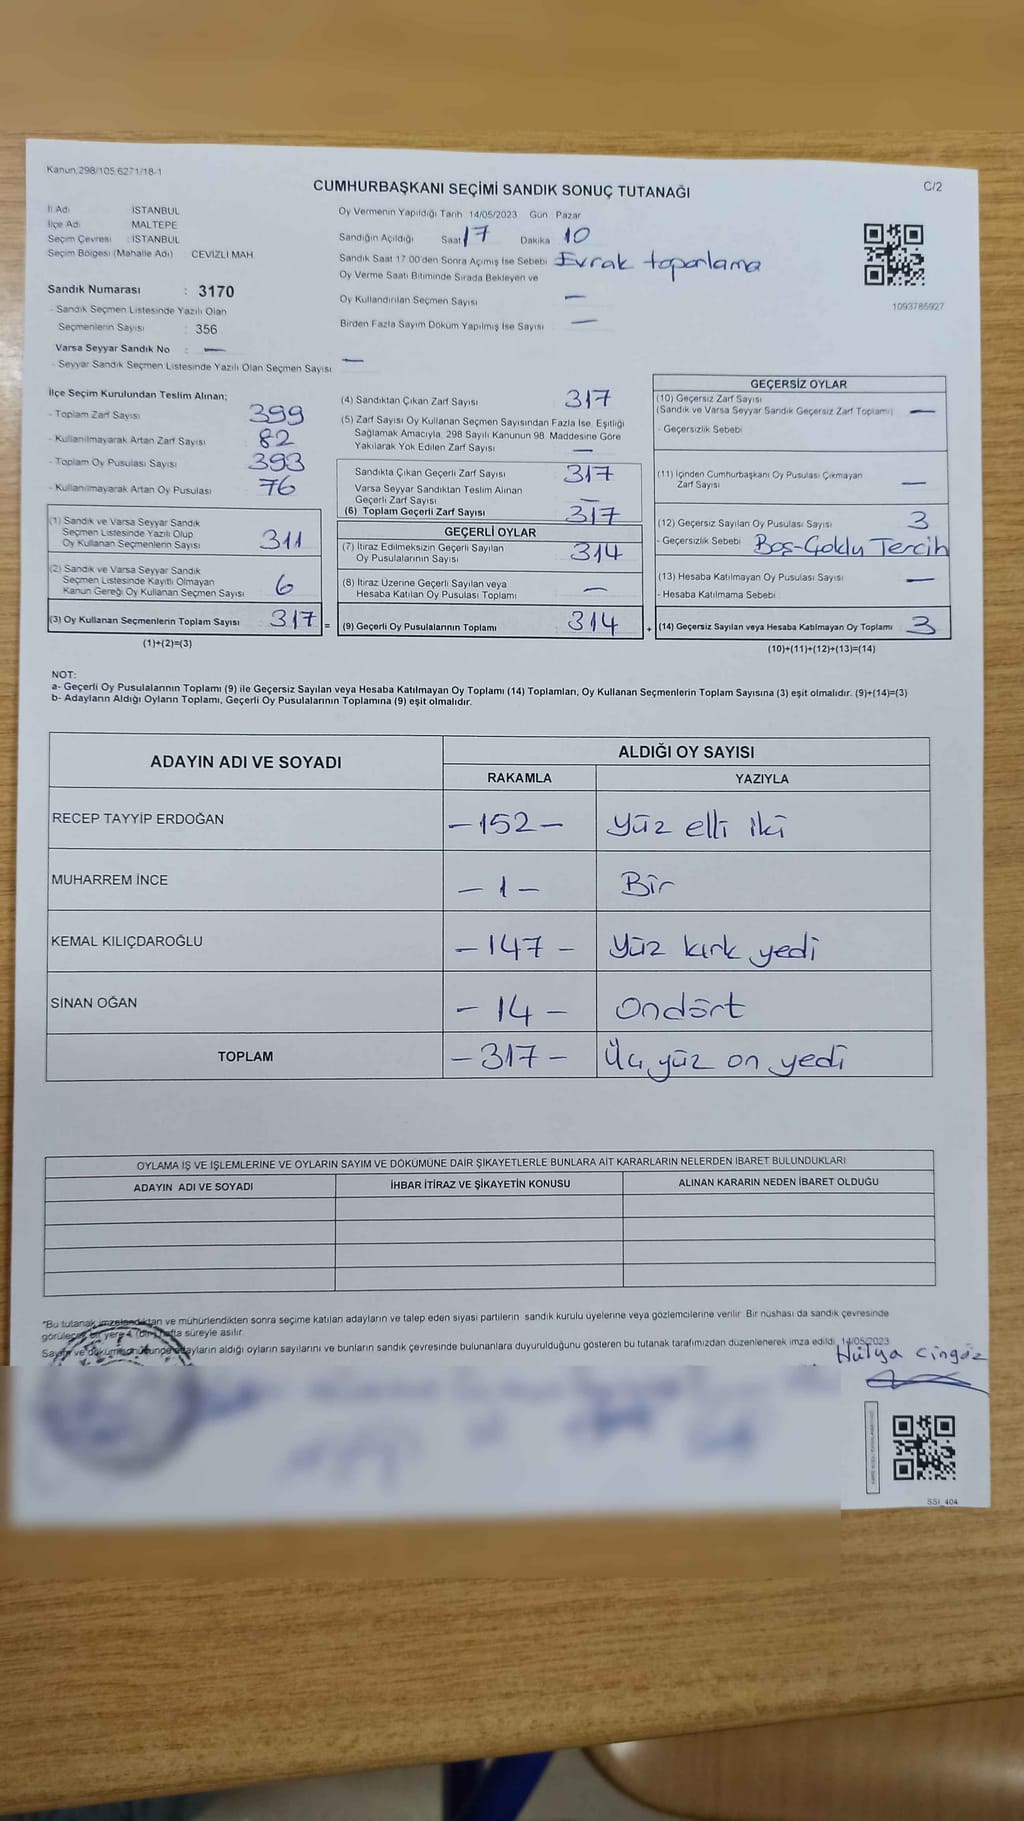 Kanun:298/105 6271/18-1
CUMHURBAŞKANI SEÇİMİ SANDIK SONUÇ TUTANAĞI
C/2
İl Adı : İSTANBUL
İlçe Adı : MALTEPE
Seçim Çevresi : İSTANBUL
Seçim Bölgesi (Mahalle Adı) CEVİZLİ MAH
Sandık Numarası : 3170
- Sandık Seçmen Listesinde Yazılı Olan
Seçmenlerin Sayısı : 356
Varsa Seyyar Sandık No : —
- Seyyar Sandık Seçmen Listesinde Yazılı Olan Seçmen Sayısı —
Oy Vermenin Yapıldığı Tarih 14/05/2023 Gün Pazar
Sandığın Açıldığı Saat 17 Dakika 10
Sandık Saat 17.00'den Sonra Açımış İse Sebebi Evrak toparlama
Oy Verme Saati Bitiminde Sırada Bekleyen ve
Oy Kullandırılan Seçmen Sayısı —
Birden Fazla Sayım Döküm Yapılmış İse Sayısı —
1093785927
İlçe Seçim Kurulundan Teslim Alınan;
- Toplam Zarf Sayısı 399
- Kullanılmayarak Artan Zarf Sayısı 82
- Toplam Oy Pusulası Sayısı 393
- Kullanılmayarak Artan Oy Pusulası 76
(1) Sandık ve Varsa Seyyar Sandık
Seçmen Listesinde Yazılı Olup
Oy Kullanan Seçmenlerin Sayısı 311
(2) Sandık ve Varsa Seyyar Sandık
Seçmen Listesinde Kayıtlı Olmayan
Kanun Gereği Oy Kullanan Seçmen Sayısı 6
(3) Oy Kullanan Seçmenlerin Toplam Sayısı 317 =
(1)+(2)=(3)
(4) Sandıktan Çıkan Zarf Sayısı 317
(5) Zarf Sayısı Oy Kullanan Seçmen Sayısından Fazla İse, Eşitliği
Sağlamak Amacıyla, 298 Sayılı Kanunun 98. Maddesine Göre
Yakılarak Yok Edilen Zarf Sayısı —
Sandıkta Çıkan Geçerli Zarf Sayısı 317
Varsa Seyyar Sandıktan Teslim Alınan
Geçerli Zarf Sayısı —
(6) Toplam Geçerli Zarf Sayısı 317
GEÇERLİ OYLAR
(7) İtiraz Edilmeksizin Geçerli Sayılan
Oy Pusulalarının Sayısı 314
(8) İtiraz Üzerine Geçerli Sayılan veya
Hesaba Katılan Oy Pusulası Toplamı —
(9) Geçerli Oy Pusulalarının Toplamı 314 +
GEÇERSİZ OYLAR
(10) Geçersiz Zarf Sayısı
(Sandık ve Varsa Seyyar Sandık Geçersiz Zarf Toplamı) —
- Geçersizlik Sebebi
(11) İçinden Cumhurbaşkanı Oy Pusulası Çıkmayan
Zarf Sayısı —
(12) Geçersiz Sayılan Oy Pusulası Sayısı 3
- Geçersizlik Sebebi Boş-Çoklu Tercih
(13) Hesaba Katılmayan Oy Pusulası Sayısı —
- Hesaba Katılmama Sebebi
(14) Geçersiz Sayılan veya Hesaba Katılmayan Oy Toplamı 3
(10)+(11)+(12)+(13)=(14)
NOT:
a- Geçerli Oy Pusulalarının Toplamı (9) ile Geçersiz Sayılan veya Hesaba Katılmayan Oy Toplamı (14) Toplamları, Oy Kullanan Seçmenlerin Toplam Sayısına (3) eşit olmalıdır. (9)+(14)=(3)
b- Adayların Aldığı Oyların Toplamı, Geçerli Oy Pusulalarının Toplamına (9) eşit olmalıdır.
ADAYIN ADI VE SOYADI
ALDIĞI OY SAYISI
RAKAMLA YAZIYLA
RECEP TAYYİP ERDOĞAN -152- Yüz elli iki
MUHARREM İNCE -1- Bir
KEMAL KILIÇDAROĞLU -147- Yüz kırk yedi
SİNAN OĞAN -14- Ondört
TOPLAM -317- Üç yüz on yedi
OYLAMA İŞ VE İŞLEMLERİNE VE OYLARIN SAYIM VE DÖKÜMÜNE DAİR ŞİKAYETLERLE BUNLARA AİT KARARLARIN NELERDEN İBARET BULUNDUKLARI
ADAYIN ADI VE SOYADI İHBAR İTİRAZ VE ŞİKAYETİN KONUSU ALINAN KARARIN NEDEN İBARET OLDUĞU
*Bu tutanak imzalandıktan ve mühürlendikten sonra seçime katılan adayların ve talep eden siyasi partilerin sandık kurulu üyelerine veya gözlemcilerine verilir. Bir nüshası da sandık çevresinde
görülecek bir yere 1 (bir) hafta süreyle asılır.
Sayım ve dökümü adayların aldığı oyların sayılarını ve bunların sandık çevresinde bulunanlara duyurulduğunu gösteren bu tutanak tarafımızdan düzenlenerek imza edildi. 14/05/2023
Hülya Cingöz
SSI_404